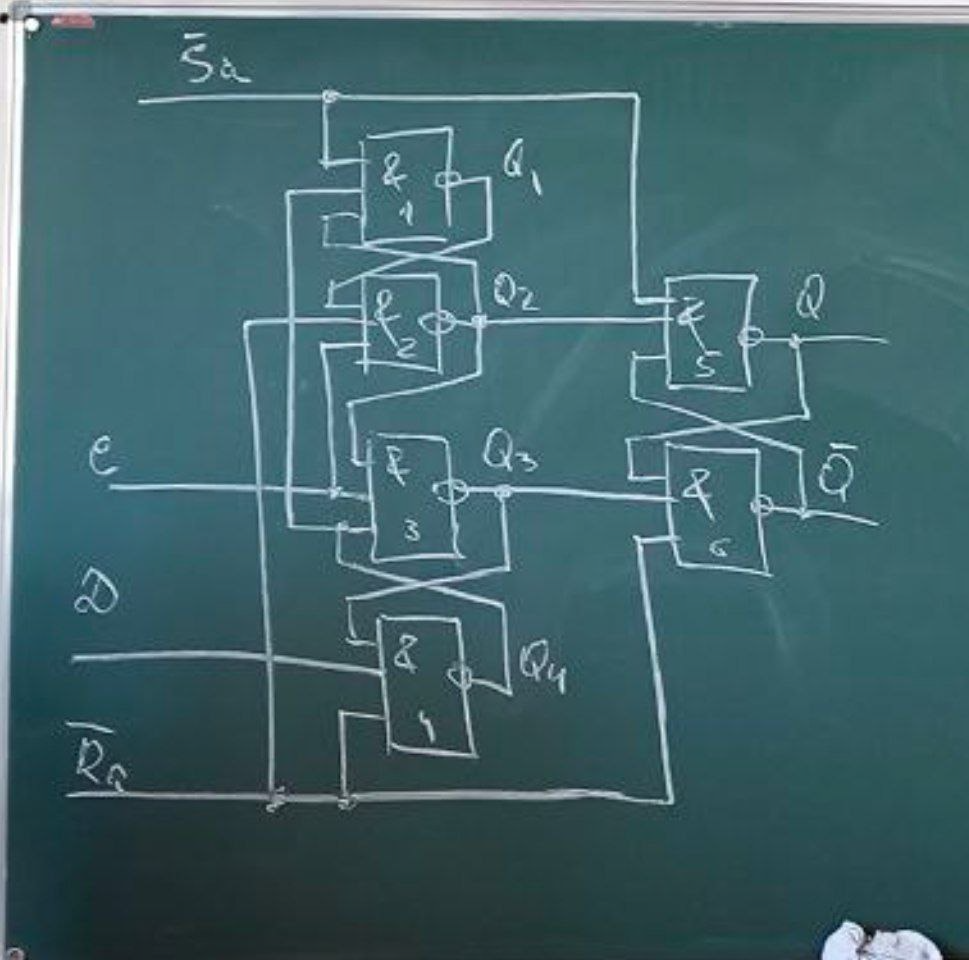 S̄a
& 1 Q₁
& 2 Q₂
& 5 Q
C
& 3 Q₃
& 6 Q̄
D
& 4 Q₄
R̄a